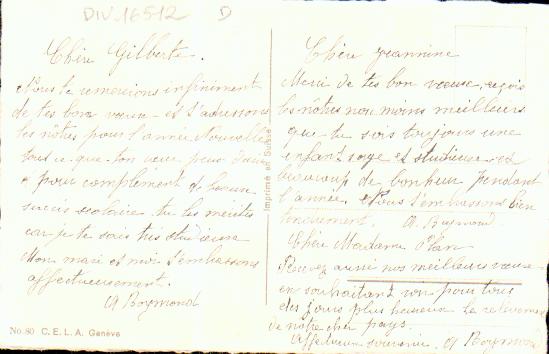 DIV 16512 D
Chère Gilberte.
Nous te remercions infiniment
de tes bon vœux et t'adressons
les nôtres pour l'année Nouvelle
tout ce que ton cœur peut
pour complément de bonne
succès scolaire tu les mérites
car je te sais très studieuse
Mon mari et moi t'embrassons
affectueusement.
A Raymond
No. 80 C.E.L.A. Genève
Imprimé en Suisse
Chère Jeannine
Merci de tes bon vœux, reçois
les nôtres non moins meilleurs
que tu sois toujours une
enfant sage et studieuse et
beaucoup de bonheur pendant
l'année. Nous t'embrassons bien
tendrement. A. Raymond
Chère Madame
Recevez aussi nos meilleurs vœux
en souhaitant pour tous
des jours plus heureux le relèvement
de notre cher pays.
Affectueux souvenir. A Raymond